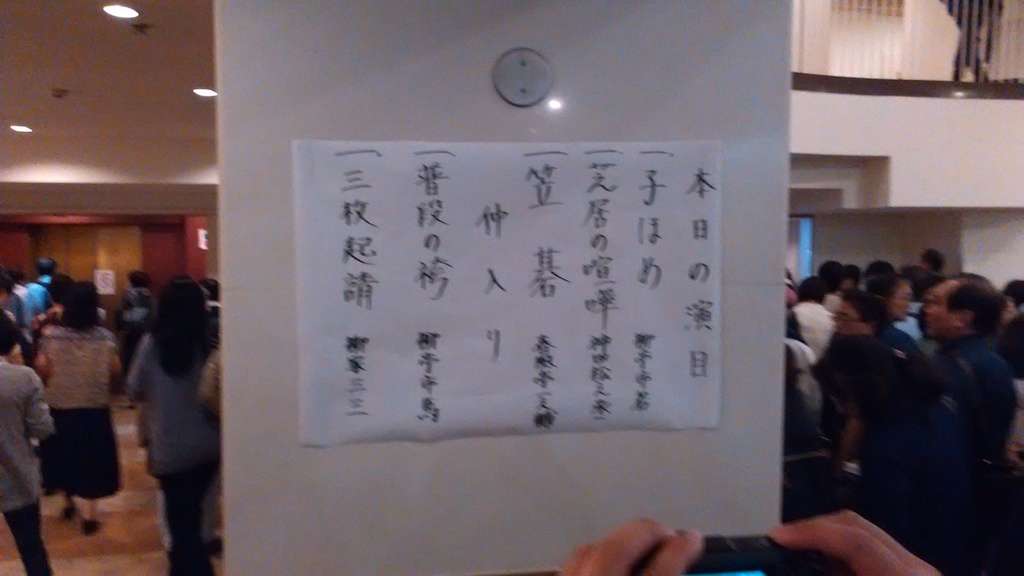 本日の演目
一 子ほめ 柳亭市若
一 芝居の喧嘩 神田松之丞
一 笠碁 春風亭一之輔
仲入り
一 普段の袴 柳亭市馬
一 三枚起請 柳家三三